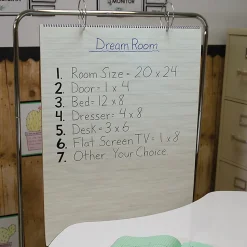 MONITOR
Dream Room
1. Room Size = 20 x 24
2. Door = 1 x 4
3. Bed = 12 x 8
4. Dresser = 4 x 8
5. Desk = 3 x 6
6. Flat Screen TV = 1 x 8
7. Other Your Choice.